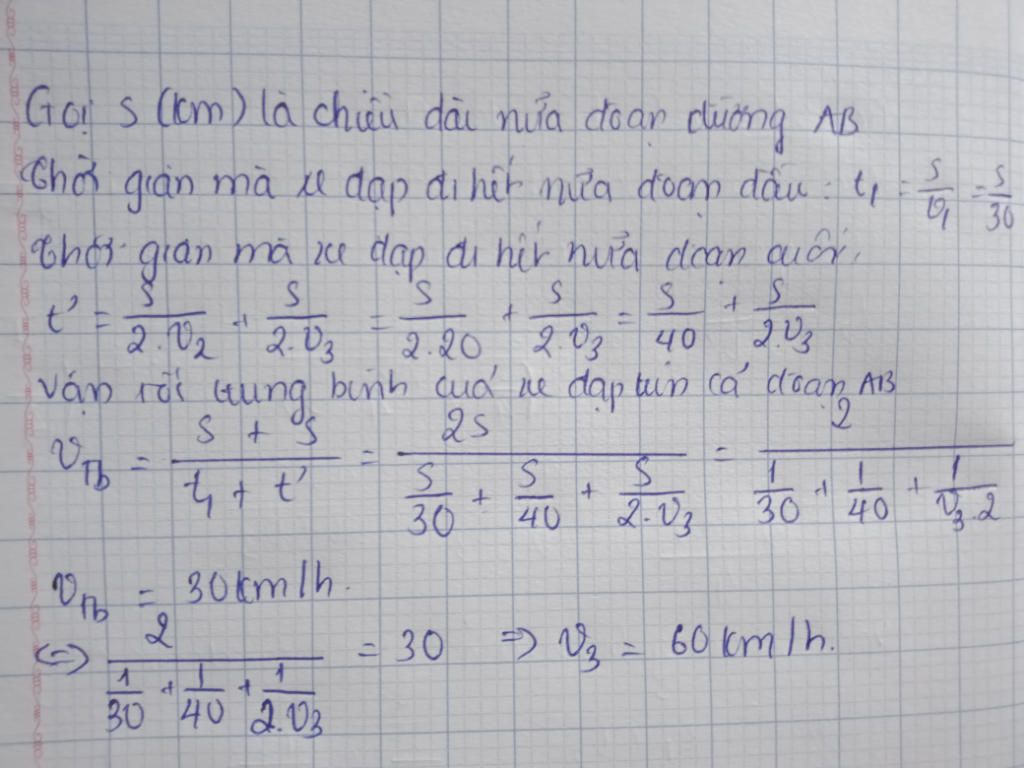 Gọi s (km) là chiều dài nửa đoạn đường AB
Thời gian mà xe đạp đi hết nửa đoạn đầu: t₁ = s/v₁ = s/30
Thời gian mà xe đạp đi hết nửa đoạn cuối.
t' = s/(2.v₂) + s/(2.v₃) = s/(2.20) + s/(2.v₃) = s/40 + s/(2.v₃)
Vận tốc trung bình của xe đạp trên cả đoạn AB
v_Tb = (s + s)/(t₁ + t') = 2s/(s/30 + s/40 + s/(2.v₃)) = 2/(1/30 + 1/40 + 1/(v₃.2))
v_Tb = 30km/h.
⇔ 2/(1/30 + 1/40 + 1/(2.v₃)) = 30 ⇒ v₃ = 60km/h.